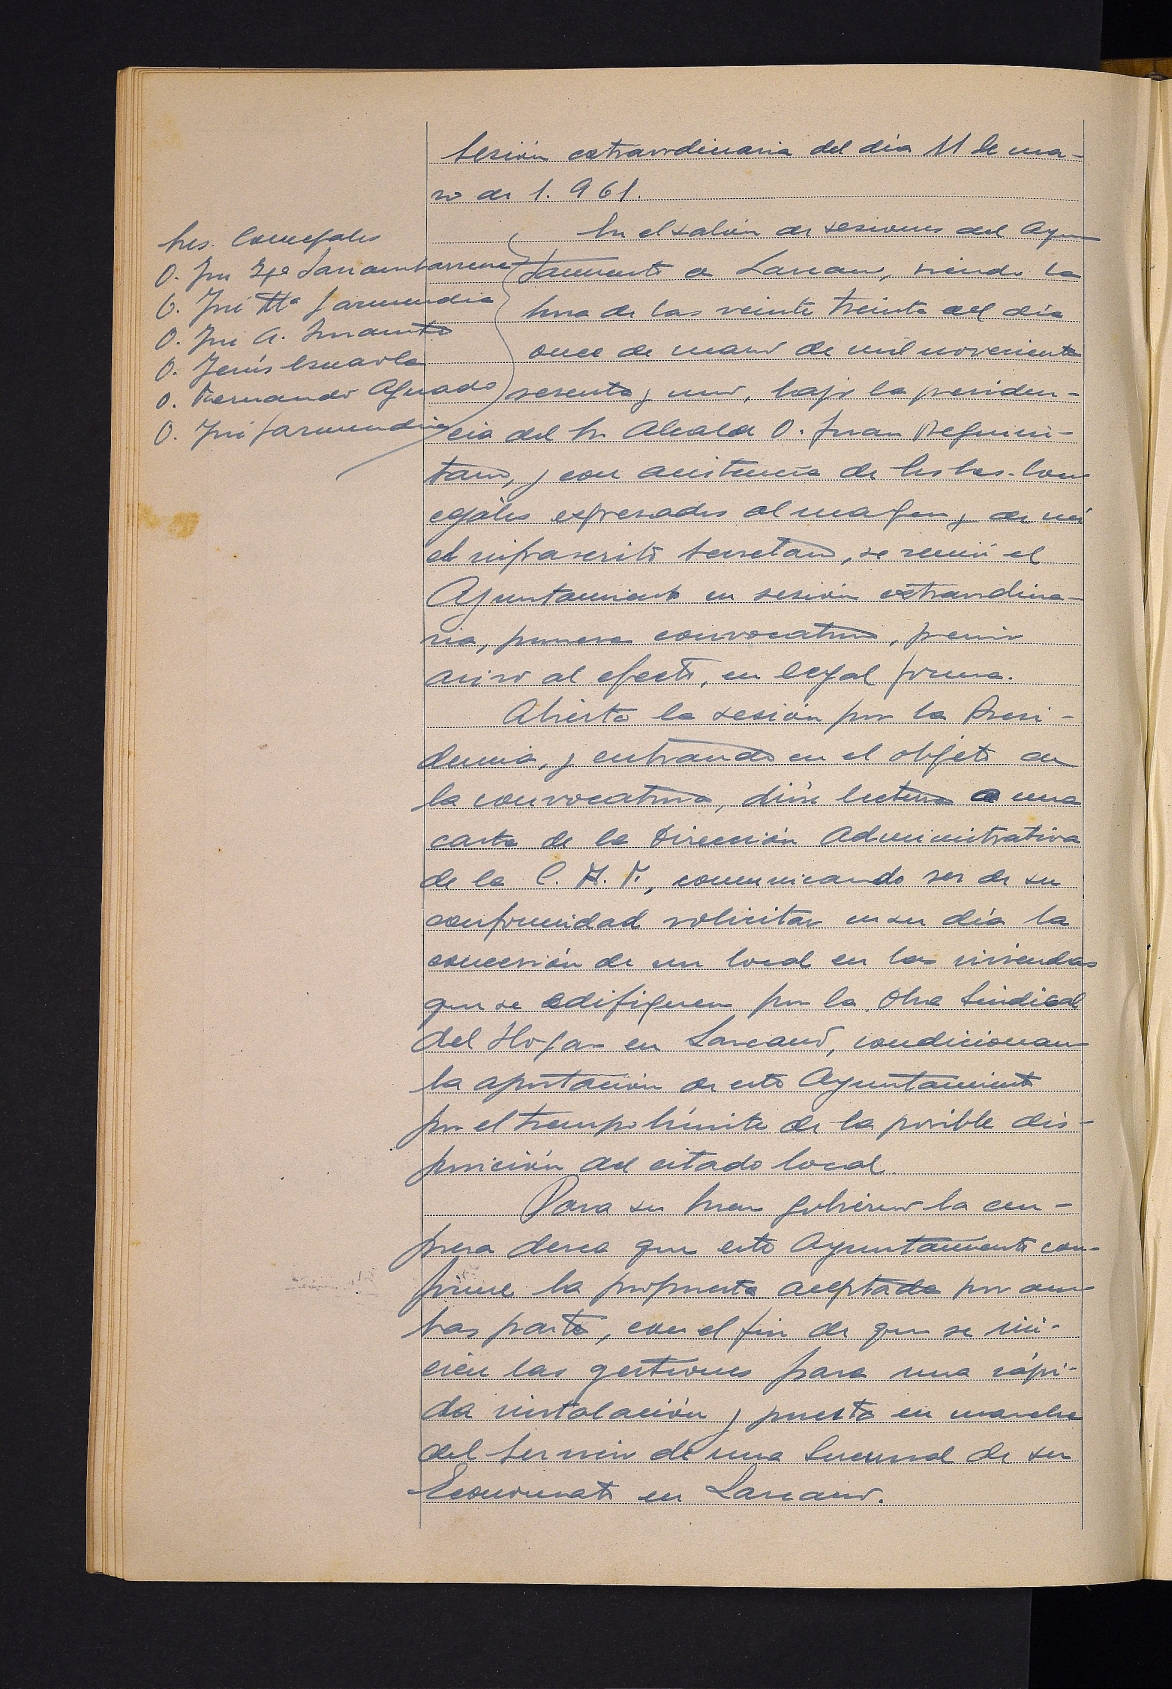 Sesión extraordinaria del dia 11 de mar-
zo de 1.961.
Sres. Concejales
D. José Mª Garmendia
D. José A.
D. Jesús
D. Fernando Aguado
D. José Garmendia
En el salón de sesiones del Ayun
tamiento de Lazcano, siendo la
hora de las veinte treinta del dia
once de marzo de mil novecientos
sesenta y uno, bajo la presiden-
cia del Sr Alcalde D. Juan
y con asistencia de los Sres. Con
cejales expresados al margen, y de mi
el infrascrito Secretario, se reunió el
Ayuntamiento en sesión extraordina-
ria, primera convocatoria, previo
aviso al efecto, en legal forma.
Abierta la sesión por la Presi-
dencia, y entrando en el objeto de
la convocatoria, dióse lectura a una
carta de la Dirección Administrativa
de la C. A. F., comunicando ser de su
conformidad solicitar en su día la
concesión de un local en las viviendas
que se edifiquen por la Obra Sindical
del Hogar en Lazcano, condicionan
la aportación de este Ayuntamiento
por el tiempo límite de la posible dis-
posición del citado local.
Para su buen gobierno la em-
presa desea que este Ayuntamiento con-
firme la propuesta aceptada por am
bas partes, con el fin de que se ini-
cien las gestiones para una rápi-
da instalación y puesta en marcha
del Servicio de una Sucursal de su
Economato en Lazcano.